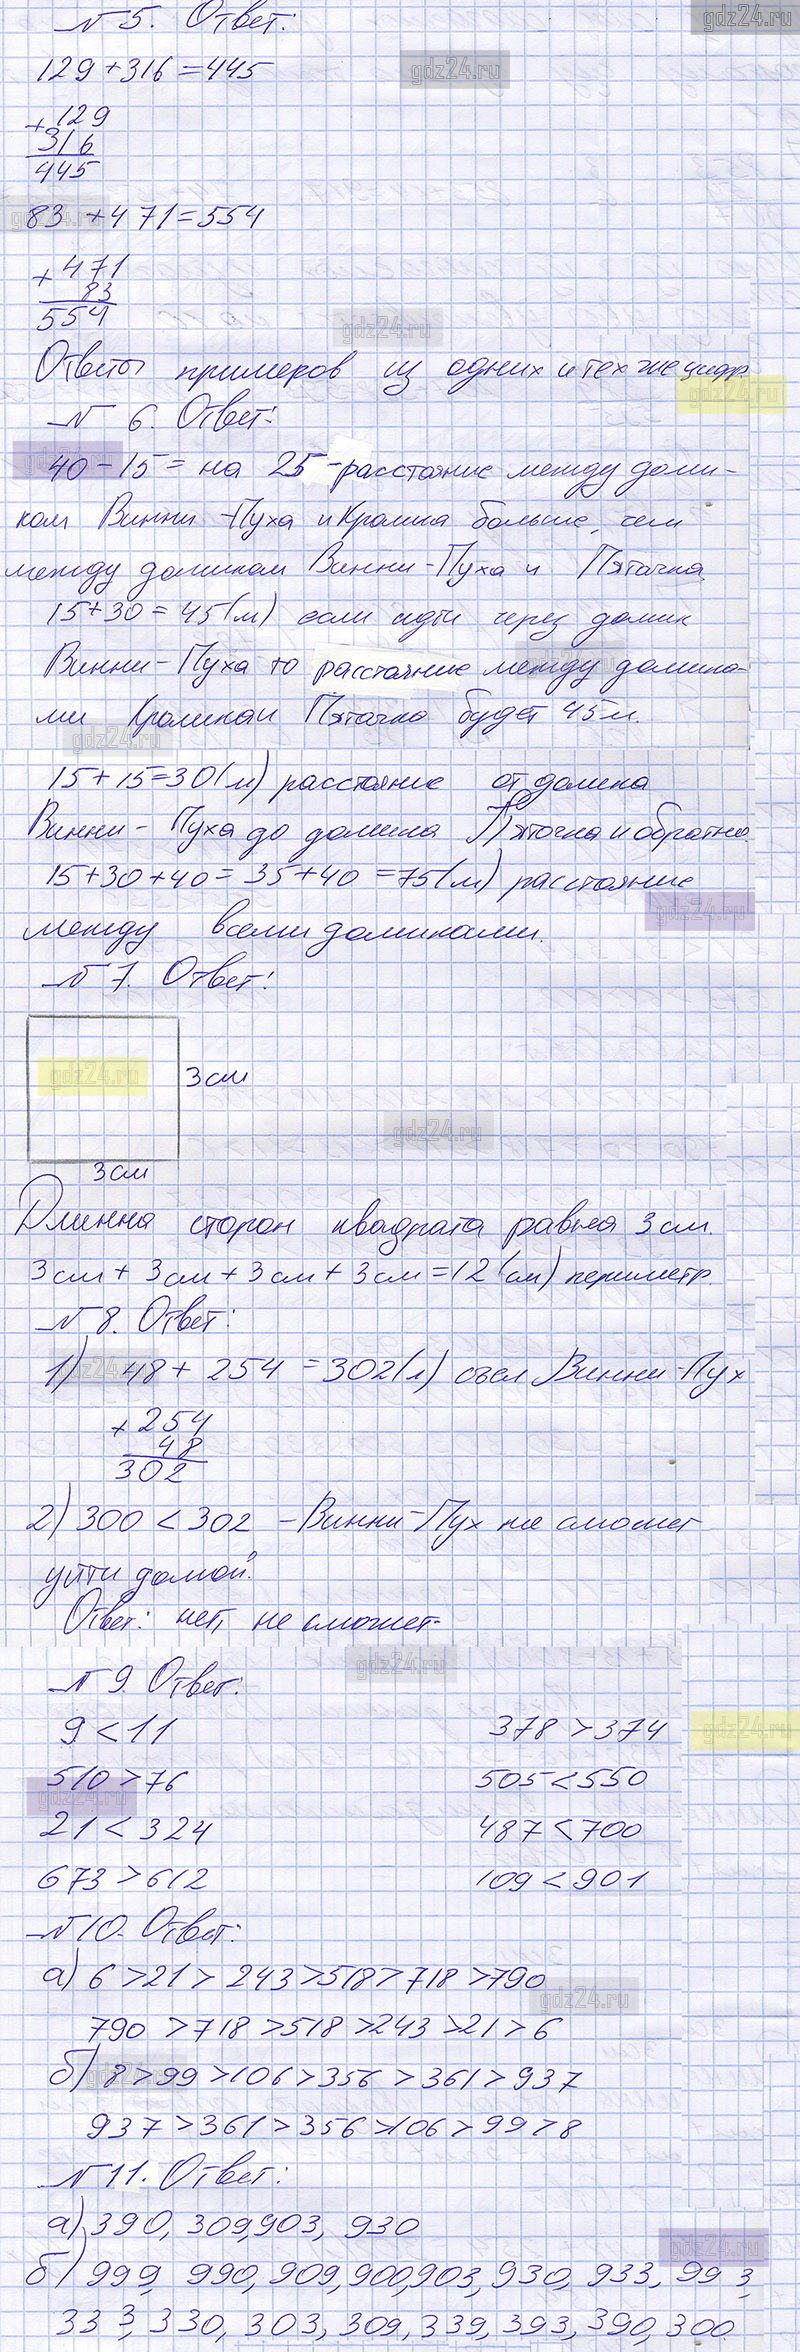 gdz24.ru
№ 5. Ответ:
129+316=445
gdz24.ru
+129
316
445
gdz24.ru
83 +471=554
+471
83
554
gdz24.ru
Ответы примеров из одних и тех же цифр.
gdz24.ru
№ 6. Ответ:
gdz24.ru
40-15= на 25-расстояние между доми-
ком Винни-Пуха и Кролика больше, чем
между домиком Винни-Пуха и Пятачка
15+30=45(м) если идти через домик
Винни-Пуха то расстояние между домика-
gdz24.ru
ми Кролика и Пятачка будет 45м.
gdz24.ru
15+15=30(м) расстояние от домика
Винни-Пуха до домика Пяточка и обратно.
15+30+40=35+40=75(м) расстояние
gdz24.ru
между всеми домиками.
№ 7. Ответ:
gdz24.ru
3см
gdz24.ru
3см
Длинна сторон квадрата равна 3см.
3см+3см+3см+3см=12(см) периметр
№ 8. Ответ:
gdz24.ru
1) 48+254=302(л) съел Винни-Пух
+254
48
302
2) 300<302 -Винни-Пух не сможет
уйти домой.
Ответ: нет, не сможет.
gdz24.ru
№ 9. Ответ:
gdz24.ru
9<11 378>374
gdz24.ru
510>76 505<550
21<324 487<700
673>612 109<901
№10. Ответ:
а) 6>21>243>518>718>790
gdz24.ru
790>718>518>243>21>6
gdz24.ru
б) 8>99>106>356>361>937
937>361>356>106>99>8
№11. Ответ:
а) 390, 309, 903, 930
gdz24.ru
б) 999, 990, 909, 900, 903, 930, 933, 993,
333, 330, 303, 309, 339, 393, 390, 300